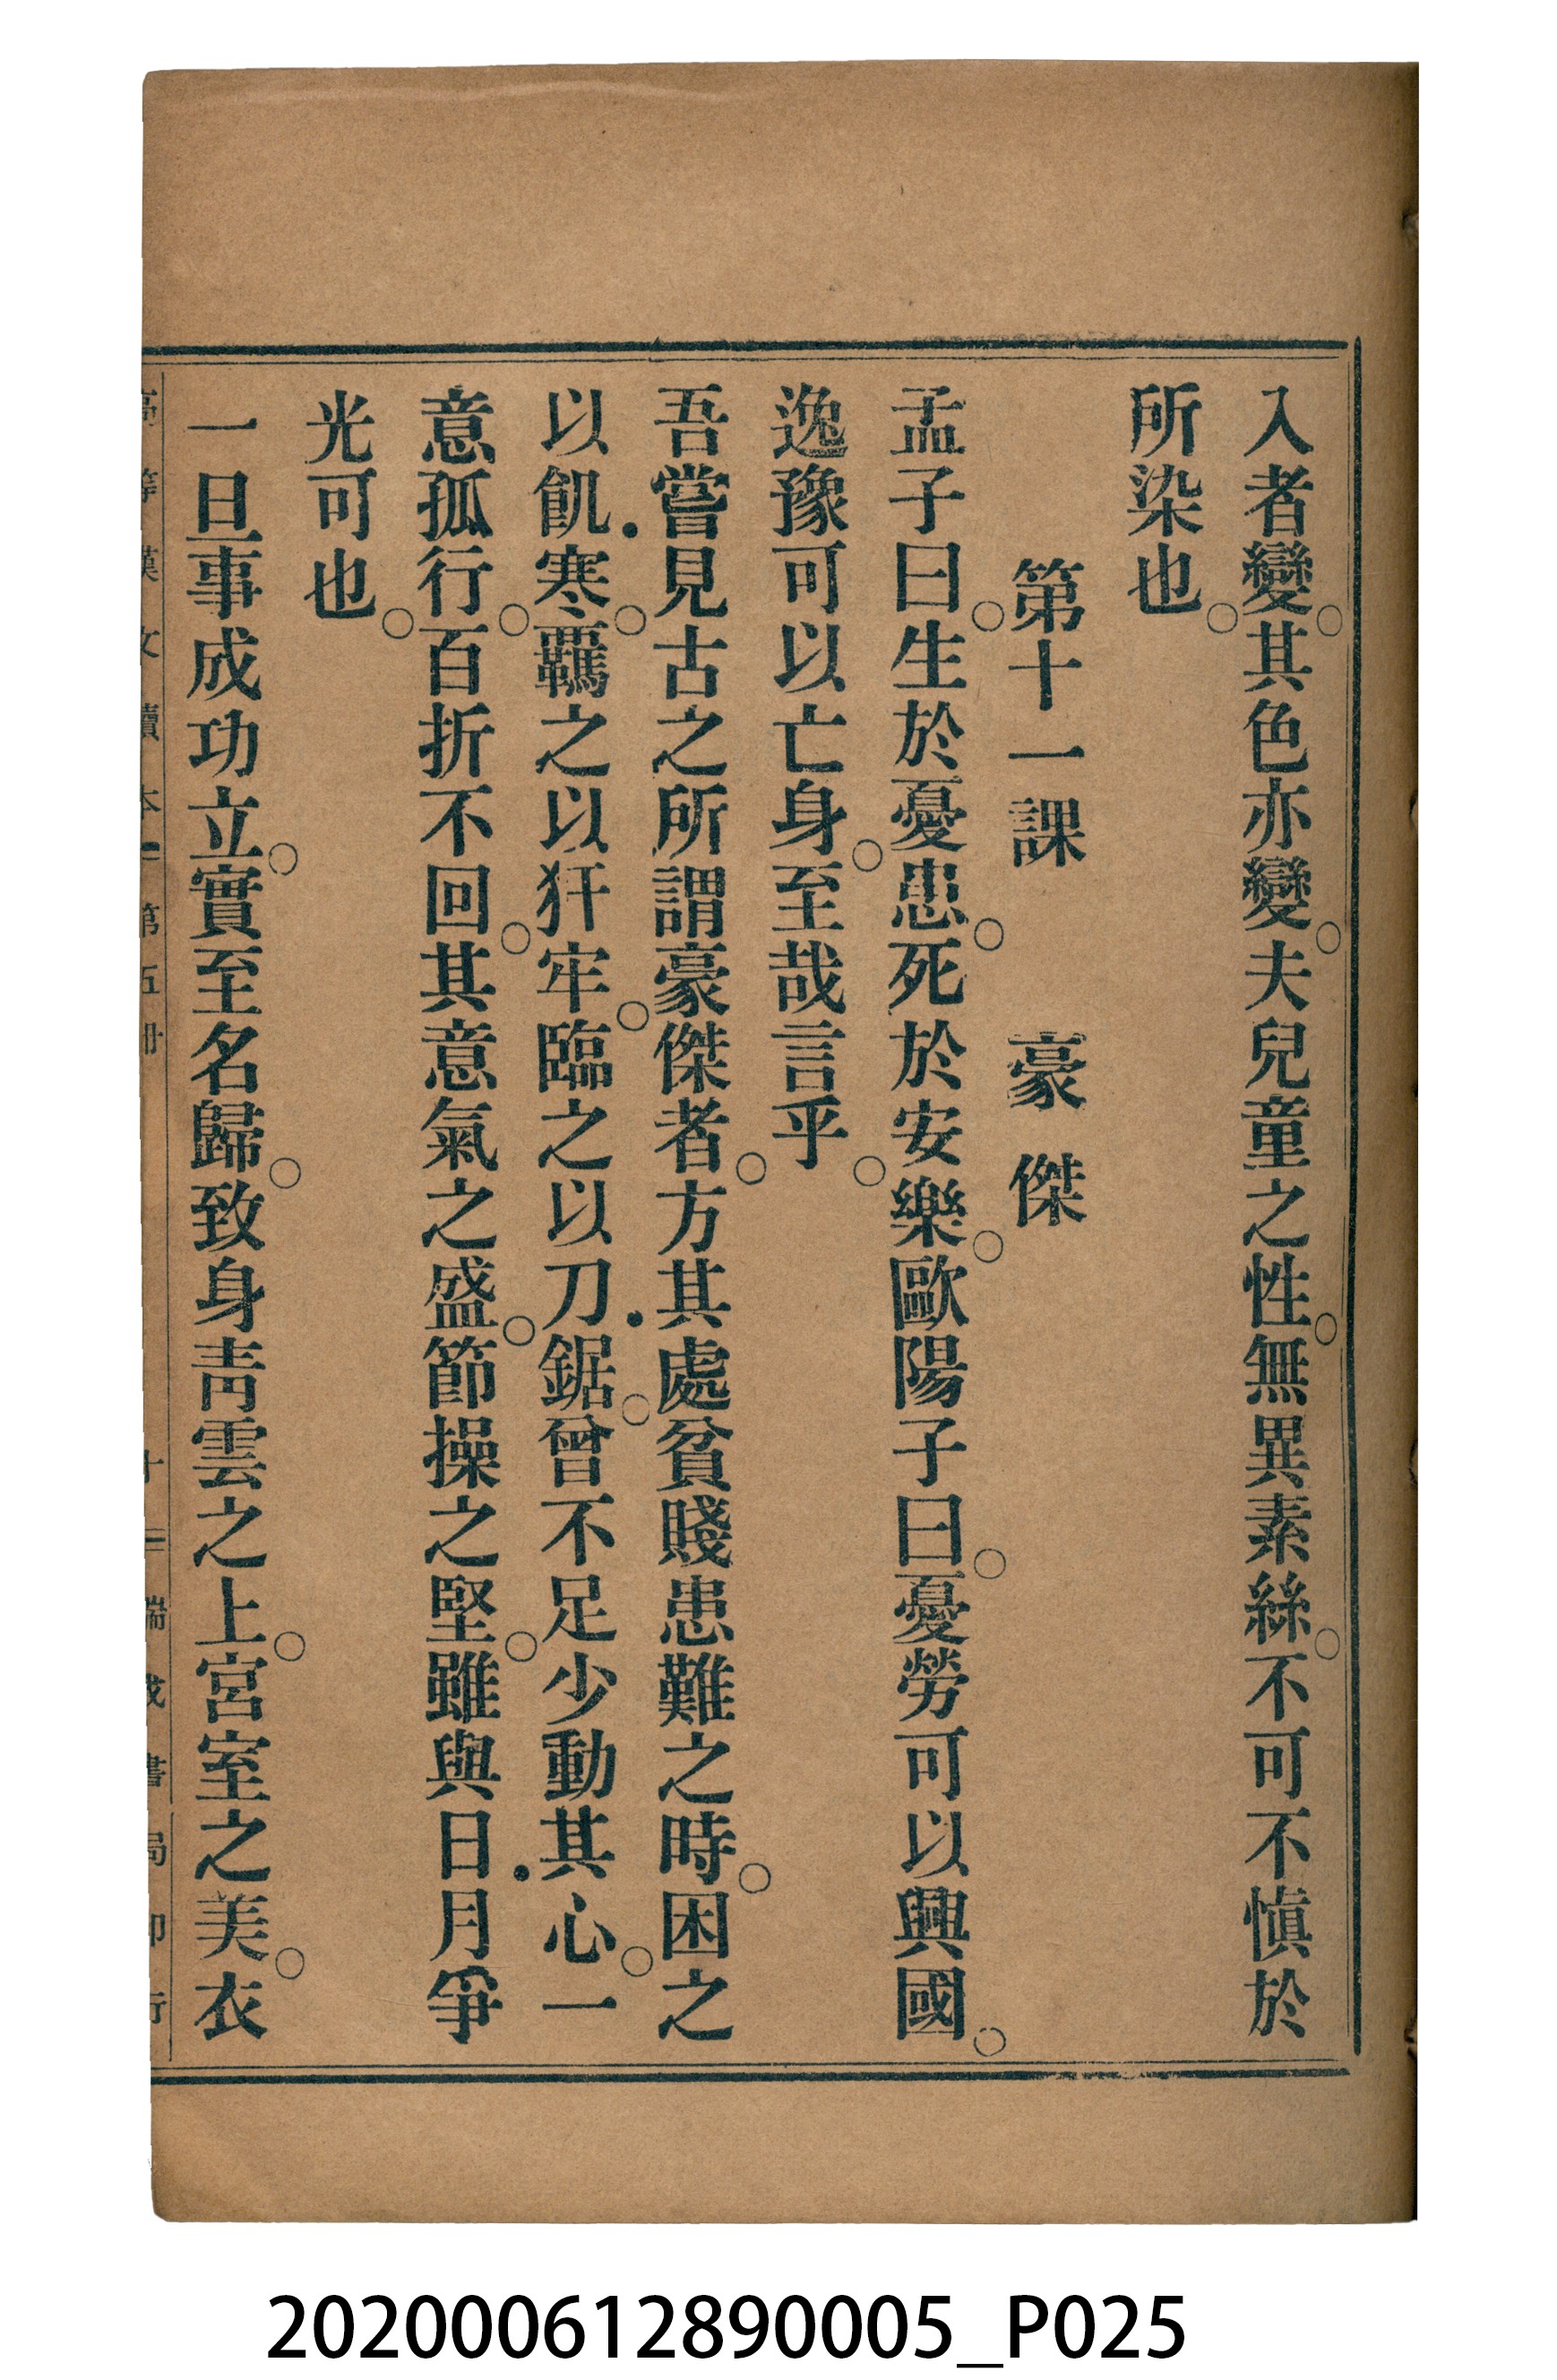 入者變。其色亦變。夫兒童之性。無異素絲。不可不愼於
所染也。
第十一課　豪傑
孟子曰。生於憂患。死於安樂。歐陽子曰。憂勞可以興國。
逸豫可以亡身。至哉言乎。
吾嘗見古之所謂豪傑者。方其處貧賤患難之時。困之
以飢寒。羈之以犴牢。臨之以刀鋸。曾不足少動其心。一
意孤行。百折不回。其意氣之盛。節操之堅。雖與日月爭
光可也。
一旦事成功立。實至名歸。致身靑雲之上。宮室之美。衣
高等漢文讀本 第五冊 十二 瑞成書局印行
202000612890005_P025